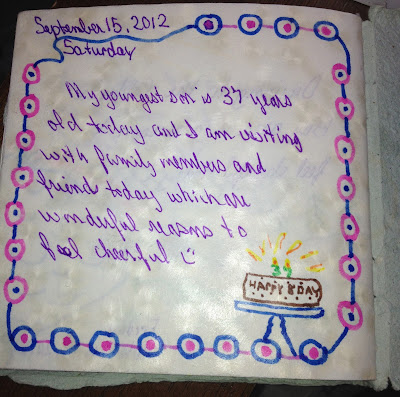 September 15, 2012
Saturday
My youngest son is 37 years
old today and I am visiting
with family members and
friend today which are
wonderful reasons to
feel cheerful
HAPPY B DAY